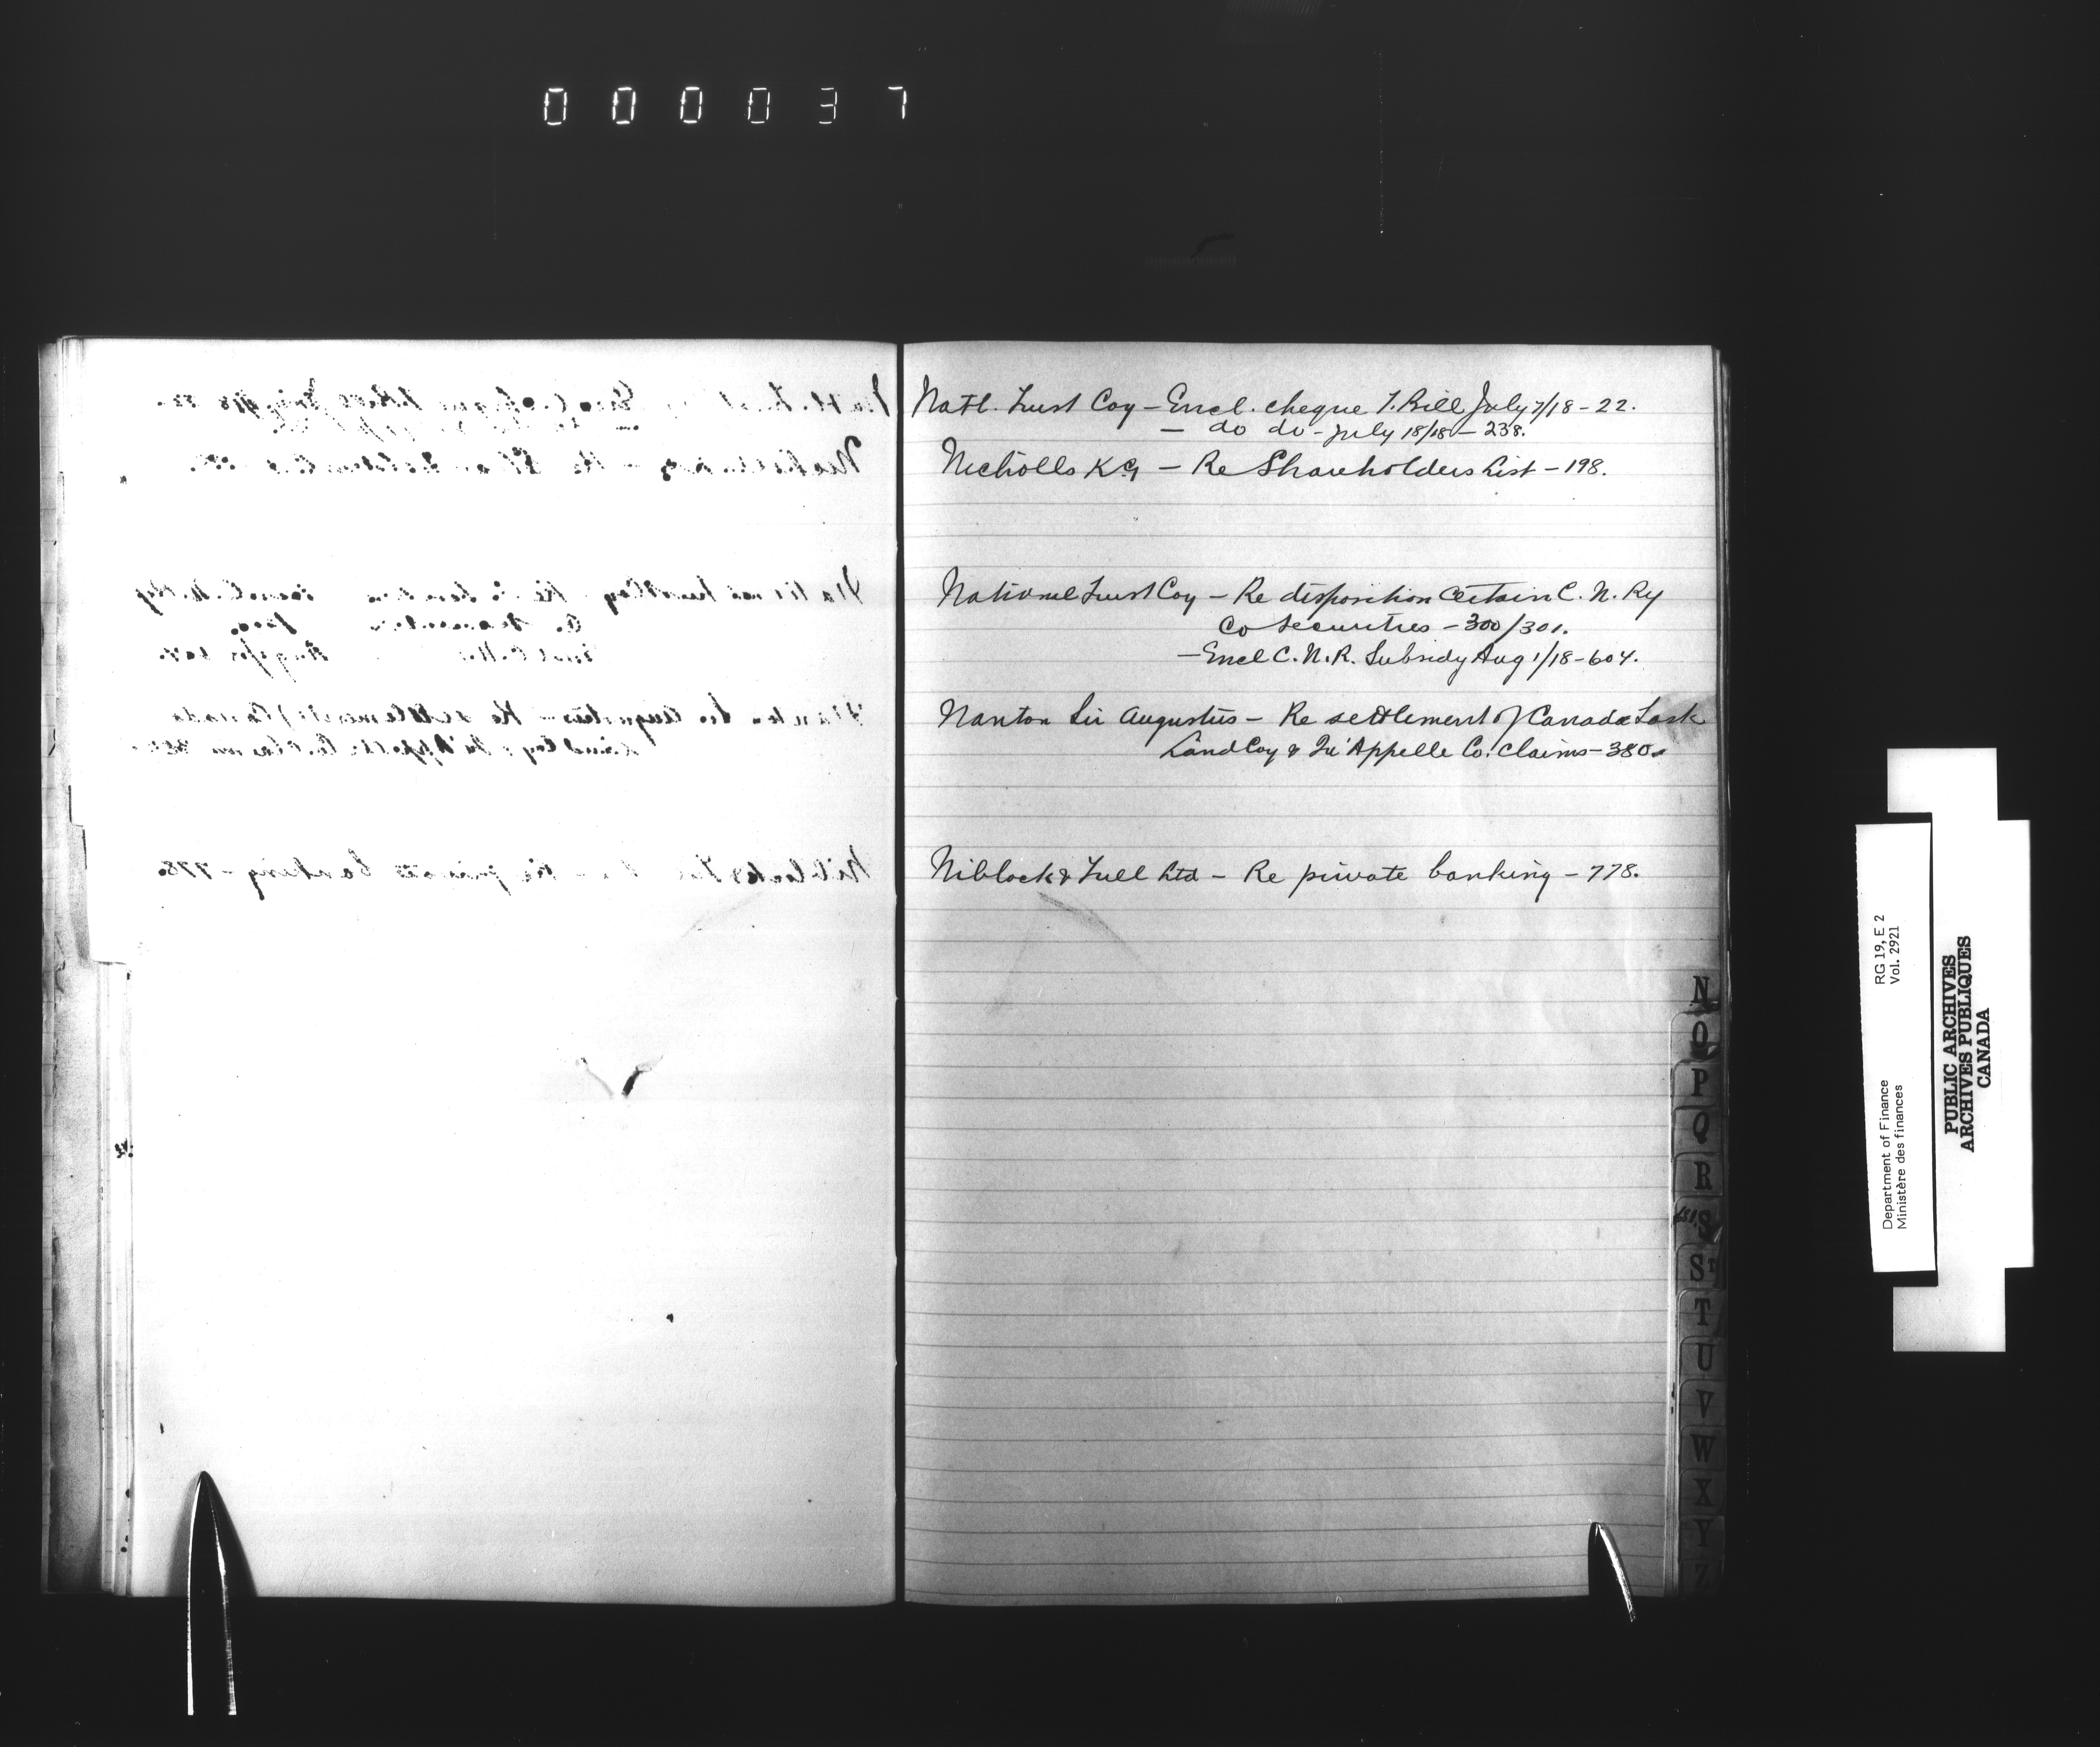 000037
Natl. Trust Coy - Encl. cheque T. Bill July 7/18 - 22.
- do do - July 18/18 - 238.
Nicholls - Re Shareholders List - 198.
National Trust Coy - Re disposition Certain C. N. Ry
Co Securities - 300/301.
- Encl C. N. R. Subsidy Aug 1/18 - 604.
Nanton Sir Augustus - Re settlement of Canada Sask
Land Coy & Qu'Appelle Co. Claims - 380.
Niblock & Tull Ltd - Re private banking - 778.
N
O
P
Q
R
S
St
T
U
V
W
X
Y
Z
Department of Finance
Ministère des finances
RG 19, E 2
Vol. 2921
PUBLIC ARCHIVES
ARCHIVES PUBLIQUES
CANADA